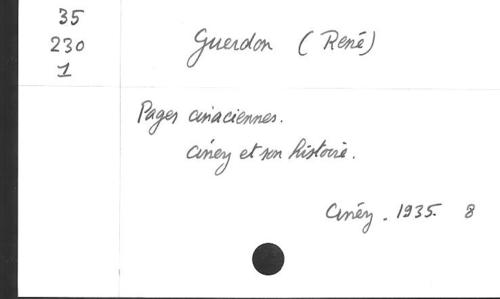 35
230
1
Guerdon (René)
Pages cinaciennes.
Ciney et son histoire.
Cinéy. 1935. 8